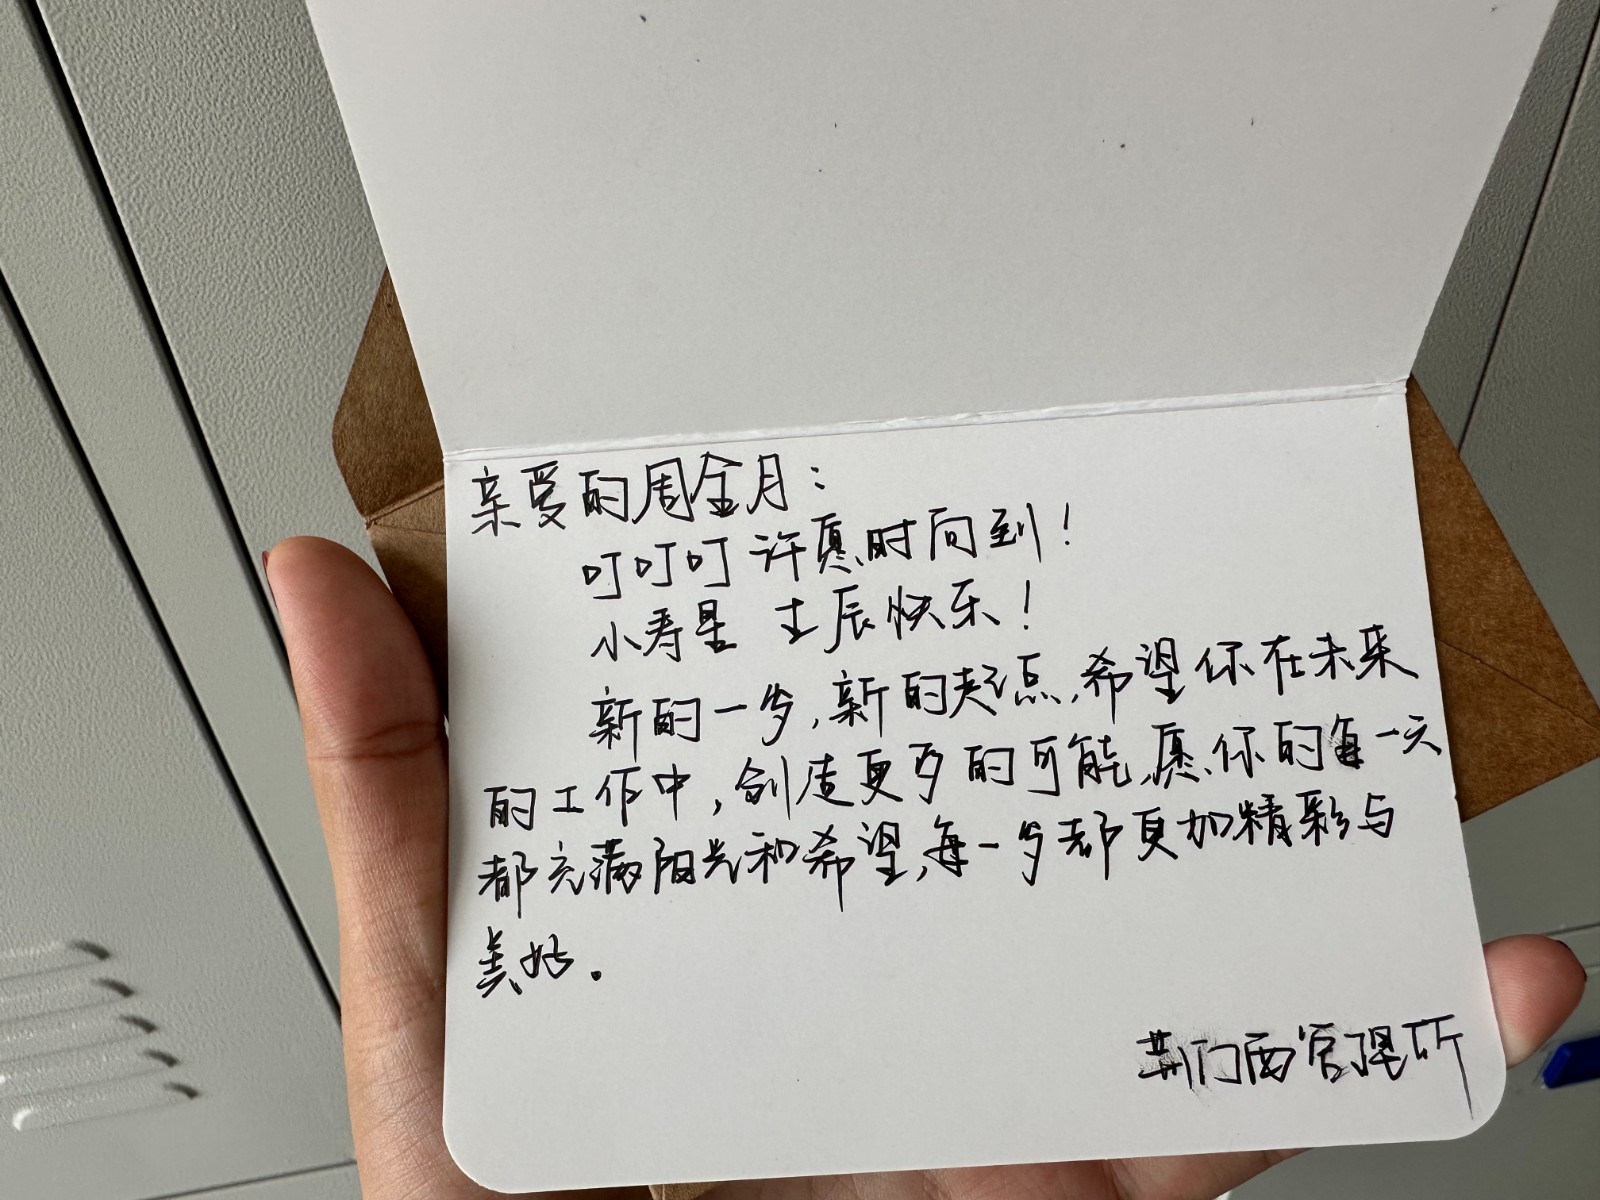 亲爱的周金月：
叮叮叮 许愿时间到！
小寿星 生辰快乐！
新的一岁，新的起点，希望你在未来
的工作中，创造更多的可能，愿你的每一天
都充满阳光和希望，每一岁都更加精彩与
美好。
荆门西管理所